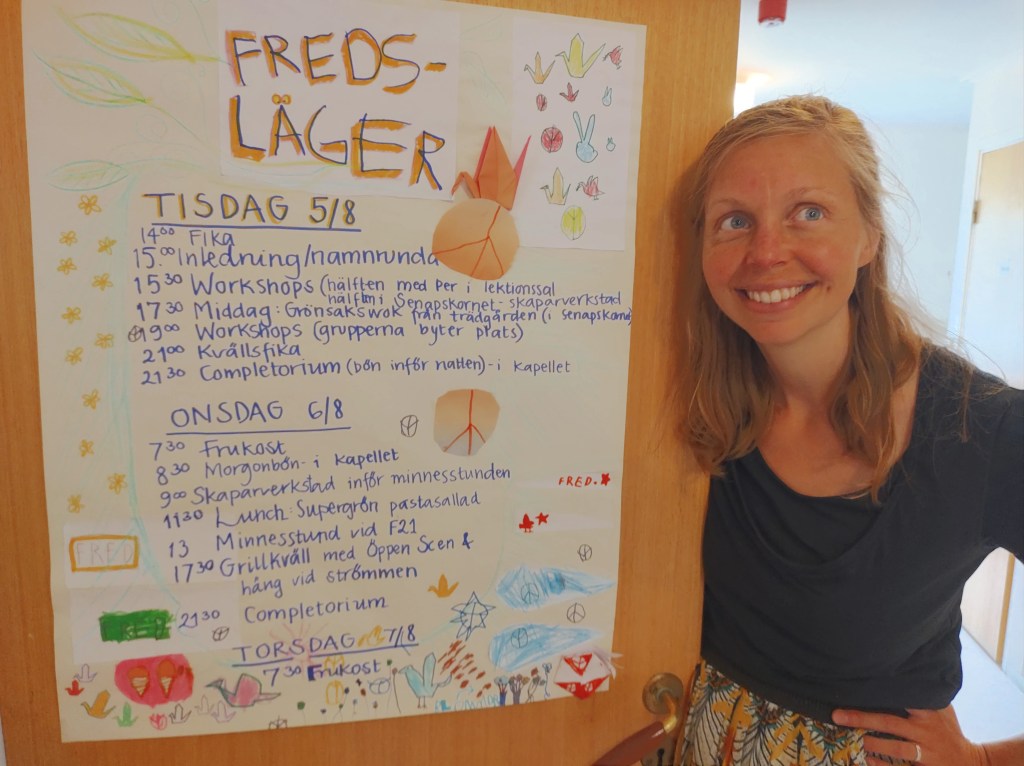 FREDS-
LÄGER
TISDAG 5/8
14⁰⁰ Fika
15.⁰⁰ Inledning/namnrunda
15³⁰ Workshops (hälften med Per i lektionssal
hälften i Senapskornet - skaparverkstad
17³⁰ Middag: Grönsakswok från trädgården (i senapskorne)
19⁰⁰ Workshops (grupperna byter plats)
21⁰⁰ Kvällsfika
21³⁰ Completorium (bön inför natten) - i kapellet
ONSDAG 6/8
7³⁰ Frukost
8³⁰ Morgonbön - i kapellet
9⁰⁰ Skaparverkstad inför minnesstunden
11³⁰ Lunch: Supergrön pastasallad
13 Minnesstund vid F21
17³⁰ Grillkväll med Öppen Scen &
häng vid strömmen
21³⁰ Completorium
TORSDAG 7/8
7³⁰ Frukost
FRED.
FRED